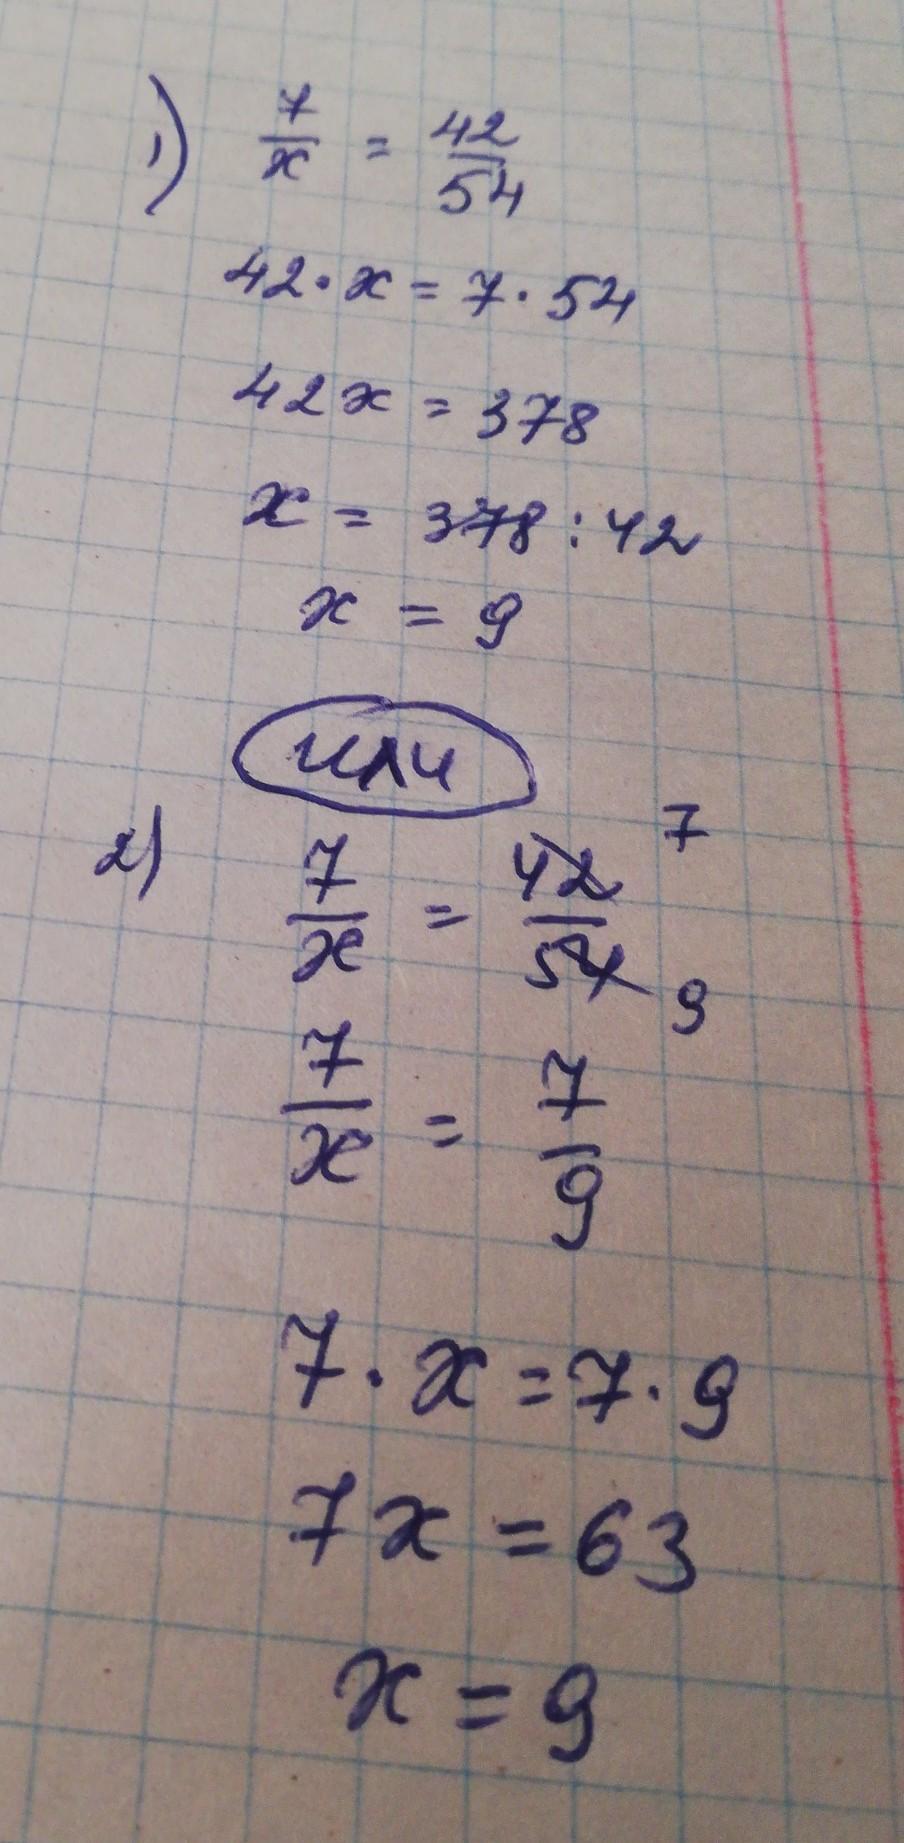 1) 7/x = 42/54
42·x = 7·54
42x = 378
x = 378:42
x = 9
или
2) 7/x = 42/54 7 9
7/x = 7/9
7·x = 7·9
7x = 63
x = 9